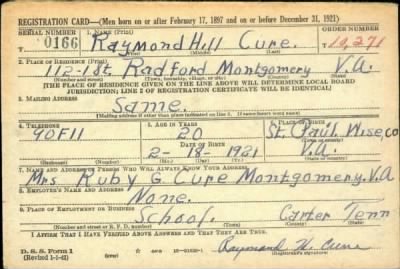 REGISTRATION CARD—(Men born on or after February 17, 1897 and on or before December 31, 1921)
SERIAL NUMBER 1. NAME (Print) ORDER NUMBER
0166 Raymond Hill Cure. 10,271
(First) (Middle) (Last)
2. PLACE OF RESIDENCE (Print)
112-1st. Radford Montgomery V.A.
(Number and street) (Town, township, village, or city) (County) (State)
[THE PLACE OF RESIDENCE GIVEN ON THE LINE ABOVE WILL DETERMINE LOCAL BOARD
JURISDICTION; LINE 2 OF REGISTRATION CERTIFICATE WILL BE IDENTICAL]
3. MAILING ADDRESS
Same.
[Mailing address if other than place indicated on line 2. If same insert word same]
4. TELEPHONE 5. AGE IN YEARS 6. PLACE OF BIRTH
90F11 20 St. Paul Wise, co
DATE OF BIRTH
2-18-1921 V.A.
(Exchange) (Number) (Mo.) (Day) (Yr.) (State or country)
7. NAME AND ADDRESS OF PERSON WHO WILL ALWAYS KNOW YOUR ADDRESS
Mrs Ruby G. Cure Montgomery, V.A
8. EMPLOYER'S NAME AND ADDRESS
None.
9. PLACE OF EMPLOYMENT OR BUSINESS
School. Carter Tenn
(Number and street or R. F. D. number) (Town) (County) (State)
I AFFIRM THAT I HAVE VERIFIED ABOVE ANSWERS AND THAT THEY ARE TRUE.
D. S. S. Form 1
(Revised 1-1-42) (over) Raymond H. Cure
(Registrant's signature)